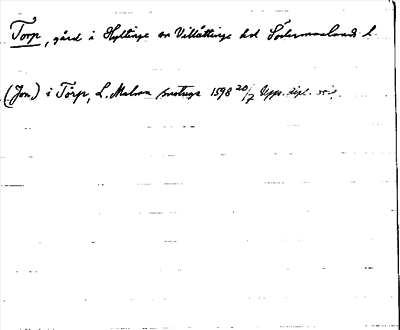 Torp, gård i Hyltinge sn Villåttinge hd Södermanlands l.
(Jon) i Torp, L. Malma sn 1598 20/7 Upps. dipl.